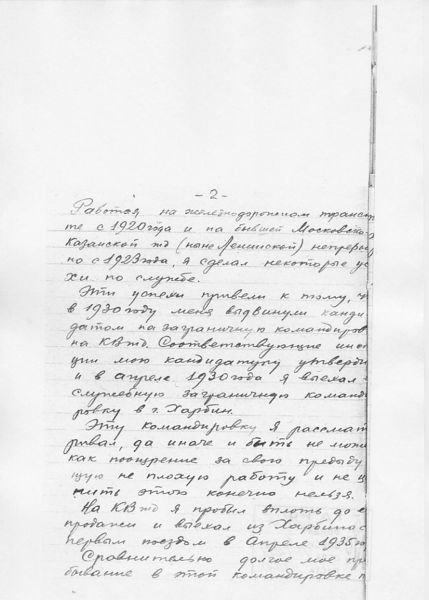 - 2 -
Работая на железнодорожном трансп
те с 1920 года и на бывшей Московско-
Казанской жд (ныне Ленинской) непреры
но с 1923 года, я сделал некоторые ус
хи по службе.
Эти успехи привели к тому, ч
в 1930 году меня выдвинули канди
датом на заграничную командиров
на КВжд. Соответствующие инс
ции мою кандидатуру утверди
и в апреле 1930 года я выехал
служебную заграничную команди
ровку в г. Харбин.
Эту командировку я рассмат
ривал, да иначе и быть не може
как поощрение за свою предыду
щую не плохую работу и не ц
нить этого конечно нельзя.
На КВжд я пробыл вплоть до е
продажи и выехал из Харбина с
первым поездом в Апреле 1935 го
Сравнительно долгое мое пр
бывание в этой командировке п